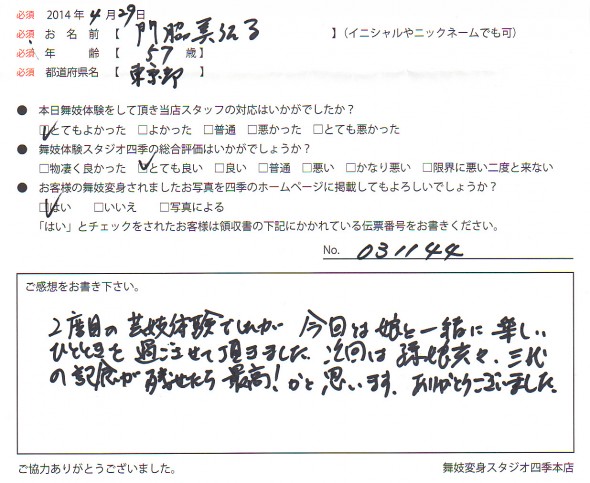 必須 2014年4月29日
必須 お名前【門脇美伝る 】(イニシャルやニックネームでも可)
必須 年齢【 57 歳】
必須 都道府県名【 東京都 】
● 本日舞妓体験をして頂き当店スタッフの対応はいかがでしたか?
☑とてもよかった □よかった □普通 □悪かった □とても悪かった
● 舞妓体験スタジオ四季の総合評価はいかがでしょうか?
□物凄く良かった ☑とても良い □良い □普通 □悪い □かなり悪い □限界に悪い二度と来ない
● お客様の舞妓変身されましたお写真を四季のホームページに掲載してもよろしいでしょうか?
☑はい □いいえ □写真による
「はい」とチェックをされたお客様は領収書の下記にかかれている伝票番号をお書きください。
No. 031144
ご感想をお書き下さい。
2度目の芸妓体験でしたが 今回は娘と一緒に楽しい
ひとときを過ごさせて頂きました。次回は孫娘共々、三代
の記念が残せたら最高!かと思います。ありがとうございました。
ご協力ありがとうございました。
舞妓変身スタジオ四季本店